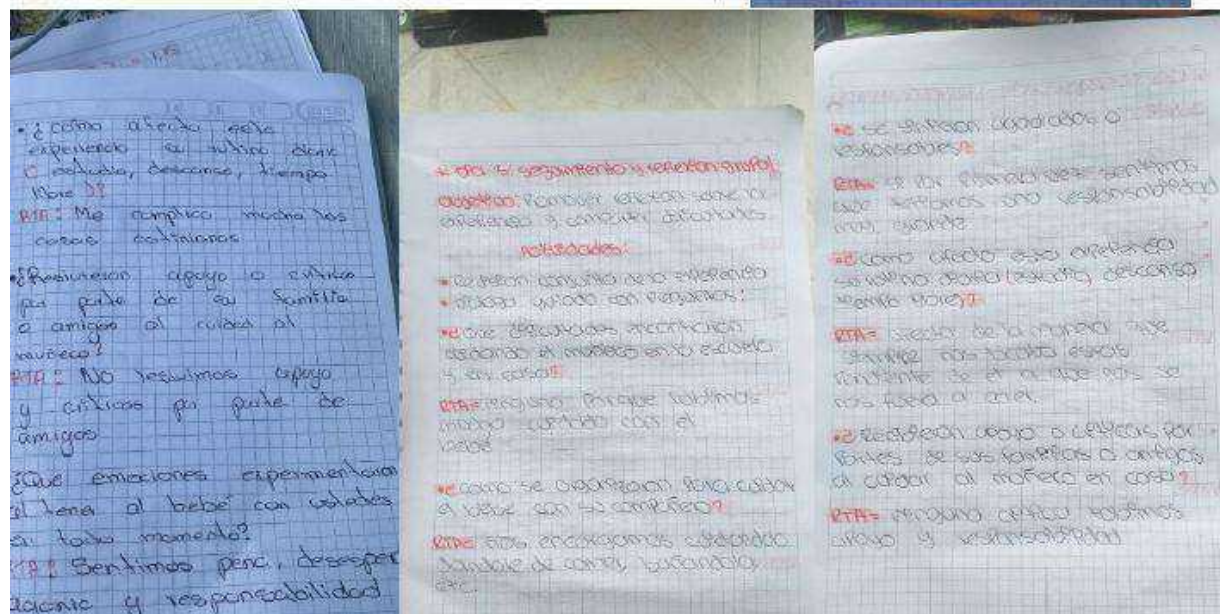 • ¿ como afecto esta
experiencia su rutina
estudio, descanso, tiempo
libre )?
RTA: Me complico mucho las
cosas
• ¿ apoyo o critica
por parte de su familia
o amigos al cuidad al
muñeco?
RTA: No apoyo
y criticas por parte de
amigos
¿Que emociones experimentaron
al tener al bebe con ustedes
en todo momento?
RTA: Sentimos pena, desesper
y responsabilidad
dia 5: seguimiento y reflexion grupal
objetivo: Promover reflexion sobre la
experiencia y compartir
Actividades:
• Reflexion conjunta de la experiencia
• dialogo guiado con preguntas:
• ¿ Que dificultades encontraron
cuidando el muñeco en la escuela
y en casa?
RTA= ninguna Porque tubimos
mucho cuidado con el
bebe
• ¿ como se organizaron para cuidar
al bebe con su compañero?
RTA= nos encargamos
dandole de comer, bañandolo,
etc.
• ¿ se sintieron o
responsables?
RTA= si Por Primera vez sentimos
que una responsabilidad
muy grande
• ¿ como afecto esta experiencia
su rutina diaria (estudio, descanso
tiempo libre)?
RTA= de la manera que
siempre nos tocaba estar
de el a que no se
nos fuera a caer.
• ¿ Recibieron apoyo o criticas por
Partes de sus familias o amigos
al cuidar al muñeco en casa?
RTA= ninguna critica tubimos
apoyo y responsabilidad